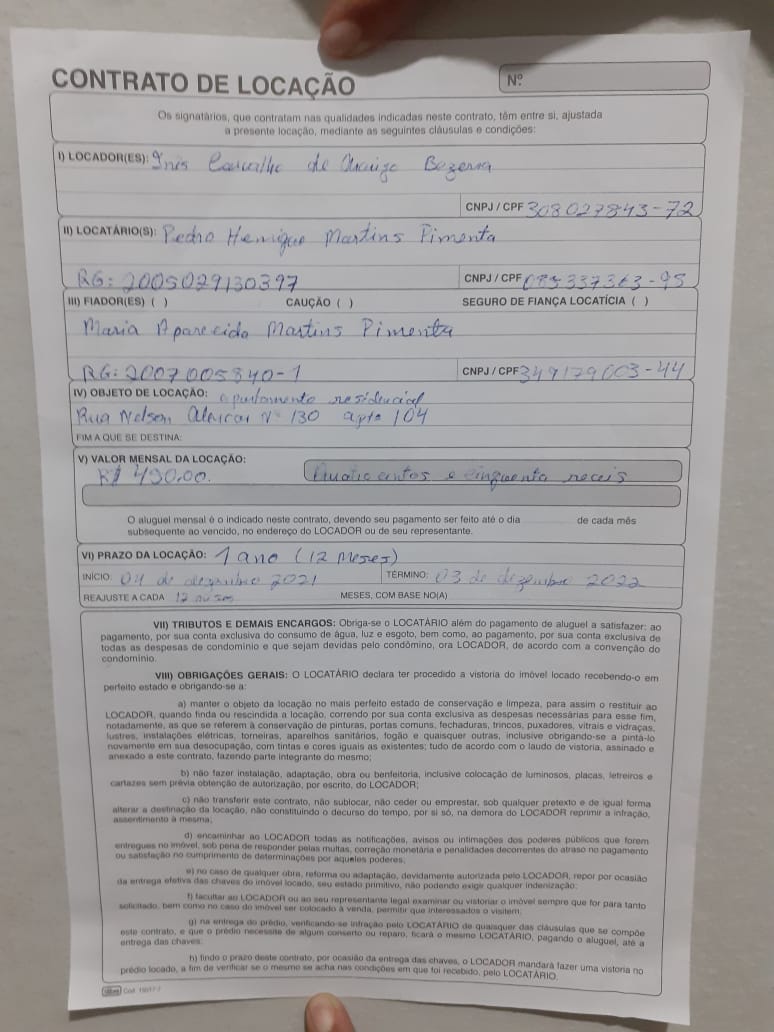 CONTRATO DE LOCAÇÃO
Nº
Os signatários, que contratam nas qualidades indicadas neste contrato, têm entre si, ajustada
a presente locação, mediante as seguintes cláusulas e condições:
I) LOCADOR(ES): Inês Carvalho de Araujo Bezerra
CNPJ / CPF 308027843-72
II) LOCATÁRIO(S): Pedro Henrique Martins Pimenta
RG: 2005029130397 CNPJ / CPF 085337363-95
III) FIADOR(ES) ( ) CAUÇÃO ( ) SEGURO DE FIANÇA LOCATÍCIA ( )
Maria Aparecida Martins Pimenta
RG: 2007005840-1 CNPJ / CPF 349179003-44
IV) OBJETO DE LOCAÇÃO: apartamento residencial
Rua Nelson Alencar Nº 130 apto 104
FIM A QUE SE DESTINA:
V) VALOR MENSAL DA LOCAÇÃO:
R$ 450,00. Quatrocentos e cinquenta reais
O aluguel mensal é o indicado neste contrato, devendo seu pagamento ser feito até o dia de cada mês
subsequente ao vencido, no endereço do LOCADOR ou de seu representante.
VI) PRAZO DA LOCAÇÃO: 1 ano (12 Meses)
INÍCIO: 04 de dezembro 2021 TÉRMINO: 03 de dezembro 2022
REAJUSTE A CADA 12 meses MESES, COM BASE NO(A)
VII) TRIBUTOS E DEMAIS ENCARGOS: Obriga-se o LOCATÁRIO além do pagamento de aluguel a satisfazer: ao
pagamento, por sua conta exclusiva do consumo de água, luz e esgoto, bem como, ao pagamento, por sua conta exclusiva de
todas as despesas de condomínio e que sejam devidas pelo condômino, ora LOCADOR, de acordo com a convenção do
condomínio.
VIII) OBRIGAÇÕES GERAIS: O LOCATÁRIO declara ter procedido a vistoria do imóvel locado recebendo-o em
perfeito estado e obrigando-se a:
a) manter o objeto da locação no mais perfeito estado de conservação e limpeza, para assim o restituir ao
LOCADOR, quando finda ou rescindida a locação, correndo por sua conta exclusiva as despesas necessárias para esse fim,
notadamente, as que se referem à conservação de pinturas, portas comuns, fechaduras, trincos, puxadores, vitrais e vidraças,
lustres, instalações elétricas, torneiras, aparelhos sanitários, fogão e quaisquer outras, inclusive obrigando-se a pintá-lo
novamente em sua desocupação, com tintas e cores iguais as existentes; tudo de acordo com o laudo de vistoria, assinado e
anexado a este contrato, fazendo parte integrante do mesmo;
b) não fazer instalação, adaptação, obra ou benfeitoria, inclusive colocação de luminosos, placas, letreiros e
cartazes sem prévia obtenção de autorização, por escrito, do LOCADOR;
c) não transferir este contrato, não sublocar, não ceder ou emprestar, sob qualquer pretexto e de igual forma
alterar a destinação da locação, não constituindo o decurso do tempo, por si só, na demora do LOCADOR reprimir a infração,
assentimento à mesma;
d) encaminhar ao LOCADOR todas as notificações, avisos ou intimações dos poderes públicos que forem
entregues no imóvel, sob pena de responder pelas multas, correção monetária e penalidades decorrentes do atraso no pagamento
ou satisfação no cumprimento de determinações por aqueles poderes;
e) no caso de qualquer obra, reforma ou adaptação, devidamente autorizada pelo LOCADOR, repor por ocasião
da entrega efetiva das chaves do imóvel locado, seu estado primitivo, não podendo exigir qualquer indenização;
f) facultar ao LOCADOR ou ao seu representante legal examinar ou vistoriar o imóvel sempre que for para tanto
solicitado, bem como no caso do imóvel ser colocado à venda, permitir que interessados o visitem;
g) na entrega do prédio, verificando-se infração pelo LOCATÁRIO de quaisquer das cláusulas que se compõe
este contrato, e que o prédio necessite de algum conserto ou reparo, ficará o mesmo LOCATÁRIO, pagando o aluguel, até a
entrega das chaves.
h) findo o prazo deste contrato, por ocasião da entrega das chaves, o LOCADOR mandará fazer uma vistoria no
prédio locado, a fim de verificar se o mesmo se acha nas condições em que foi recebido, pelo LOCATÁRIO.